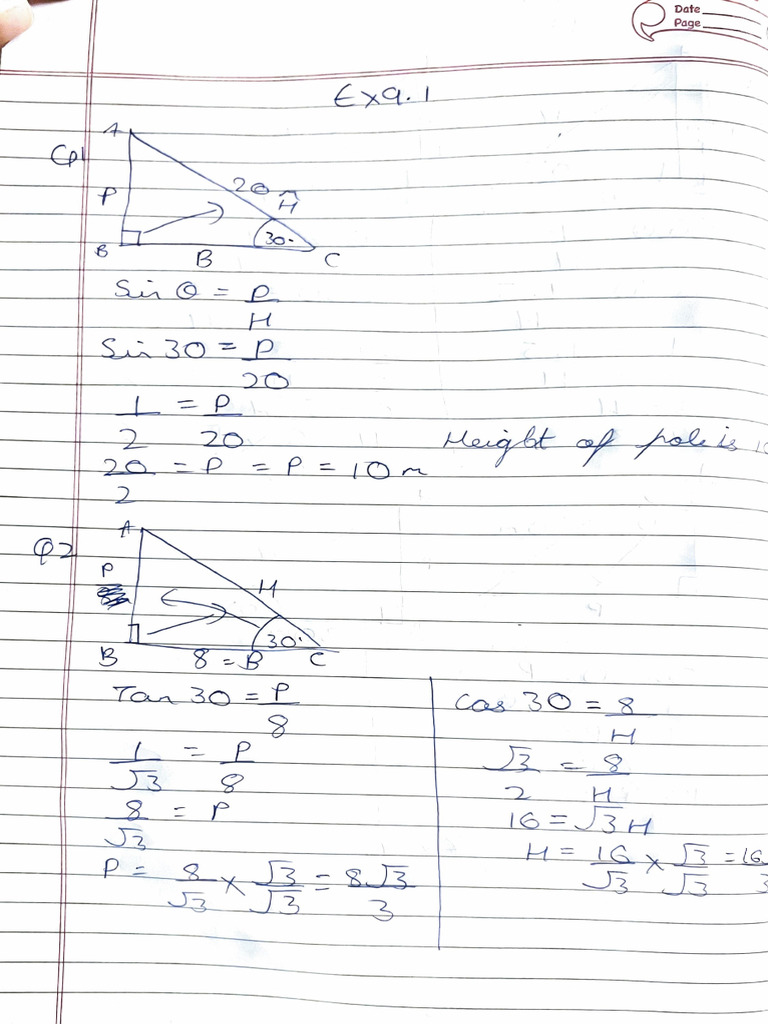 Date
Page
Ex 9.1
Q1
A
P
20
H
B
30°
B
C
Sin θ = P/H
Sin 30 = P/20
1/2 = P/20
Height of pole is
20/2 = P = P = 10 m
Q2
A
P
H
B
30°
8 = B
C
Tan 30 = P/8
1/√3 = P/8
8/√3 = P
P = 8/√3 × √3/√3 = 8√3/3
Cos 30 = 8/H
√3/2 = 8/H
16 = √3 H
H = 16/√3 × √3/√3 = 16/3